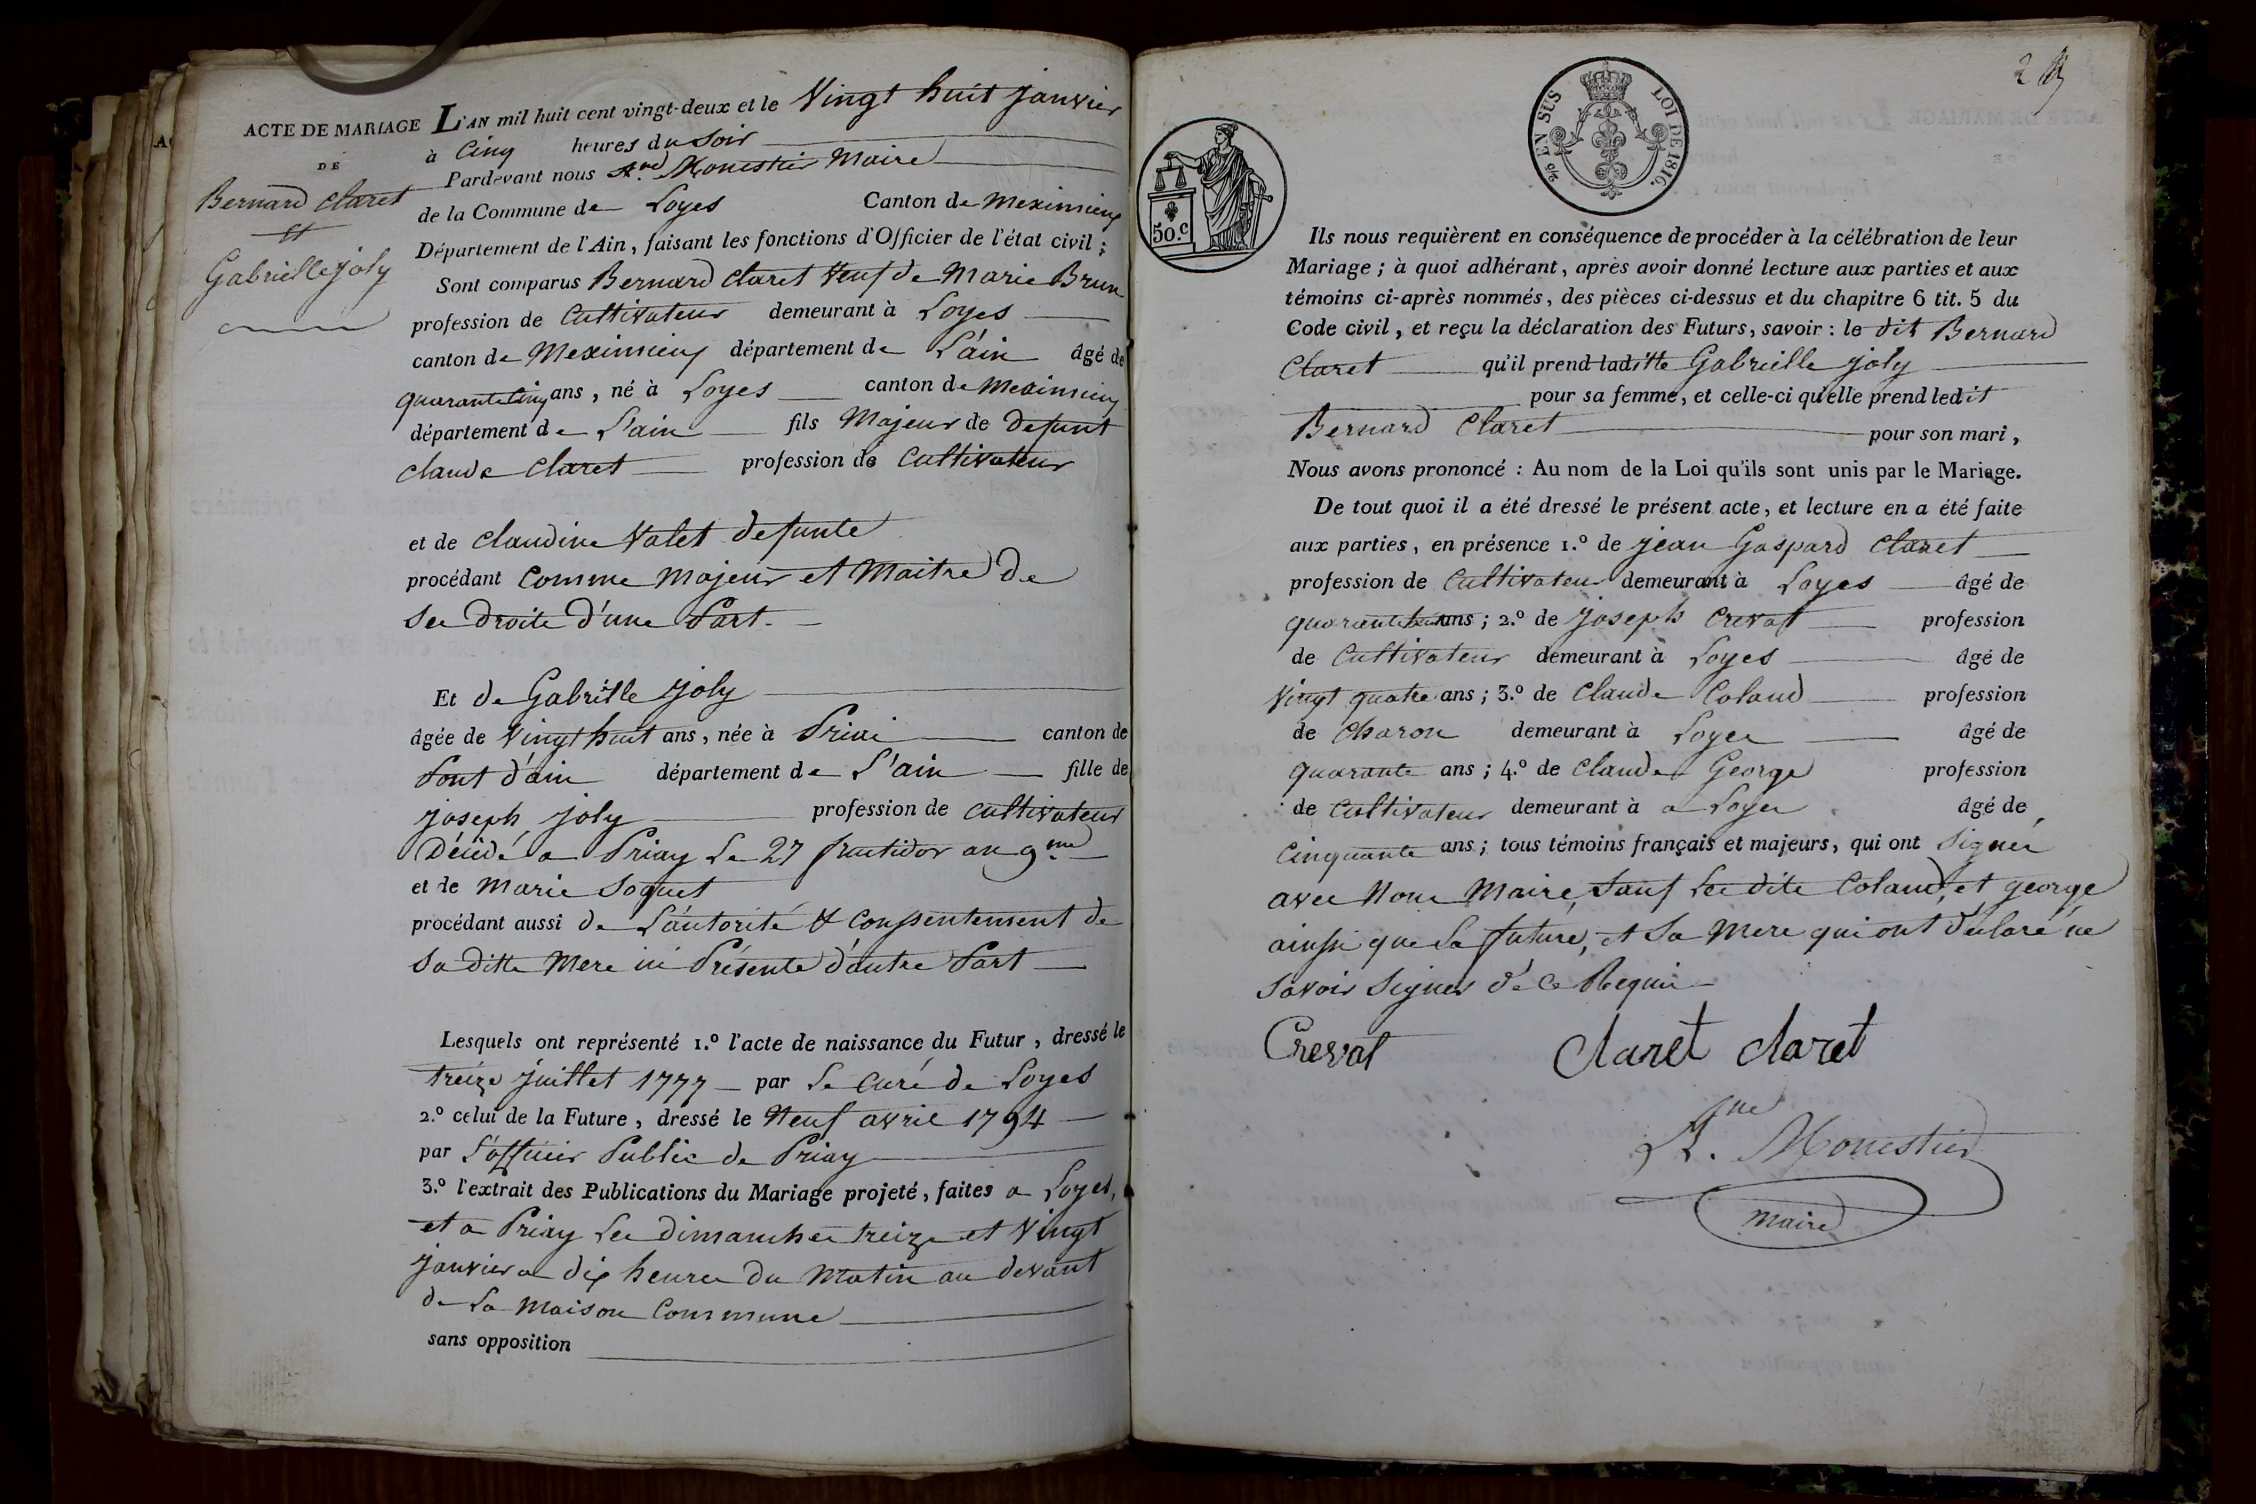 ACTE DE MARIAGE
DE
Bernard Claret
et
Gabrielle joly
L'AN mil huit cent vingt-deux et le Vingt huit janvier
à Cinq heures du Soir
Pardevant nous Monestier Maire
de la Commune de Loyes Canton de Meximieux
Département de l'Ain, faisant les fonctions d'Officier de l'état civil ;
Sont comparus Bernard Claret Veuf de Marie Brun
profession de Cultivateur demeurant à Loyes
canton de Meximieux département de L'ain âgé de
quarante cinq ans, né à Loyes canton de Meximieux
département de L'ain fils Majeur de defunt
Claude Claret profession de Cultivateur
et de Claudine Valet defunte
procédant Comme Majeur et Maitre de
Ses Droits d'une Part.
Et de Gabrielle Joly
âgée de Vingt huit ans, née à Priai canton de
Pont d'ain département de L'ain fille de
joseph joly profession de Cultivateur
Décédé a Priay Le 27 fructidor an 9.me
et de Marie Soquet
procédant aussi de L'autorité & Consentement de
Sa ditte Mere ici Présente d'autre Part
Lesquels ont représenté 1.º l'acte de naissance du Futur, dressé le
treize juillet 1777 par Le Curé de Loyes
2.º celui de la Future, dressé le Neuf avril 1794
par L'officier Public de Priay
3.º l'extrait des Publications du Mariage projeté, faites a Loyes,
et a Priay Les dimanches treize et Vingt
janvier a dix heures du Matin au devant
de La Maison Commune
sans opposition
2
EN SUS
LOI DE 1816.
50.c
Ils nous requièrent en conséquence de procéder à la célébration de leur
Mariage ; à quoi adhérant, après avoir donné lecture aux parties et aux
témoins ci-après nommés, des pièces ci-dessus et du chapitre 6 tit. 5 du
Code civil, et reçu la déclaration des Futurs, savoir : le dit Bernard
Claret qu'il prend laditte Gabrielle joly
pour sa femme, et celle-ci qu'elle prend ledit
Bernard Claret pour son mari,
Nous avons prononcé : Au nom de la Loi qu'ils sont unis par le Mariage.
De tout quoi il a été dressé le présent acte, et lecture en a été faite
aux parties, en présence 1.º de jean Gaspard Claret
profession de Cultivateur demeurant à Loyes âgé de
quarante ans ; 2.º de joseph Creval profession
de Cultivateur demeurant à Loyes âgé de
Vingt quatre ans ; 3.º de Claude Coland profession
de Charon demeurant à Loyes âgé de
quarante ans ; 4.º de Claude George profession
de Cultivateur demeurant à a Loyes âgé de
Cinquante ans ; tous témoins français et majeurs, qui ont Signés
avec Nous Maire, Sauf Les dits Coland, et george
ainsi que La future, et Sa Mere qui ont déclaré ne
Savoir Signer de ce Requis
Creval Claret Claret
Monestier
Maire